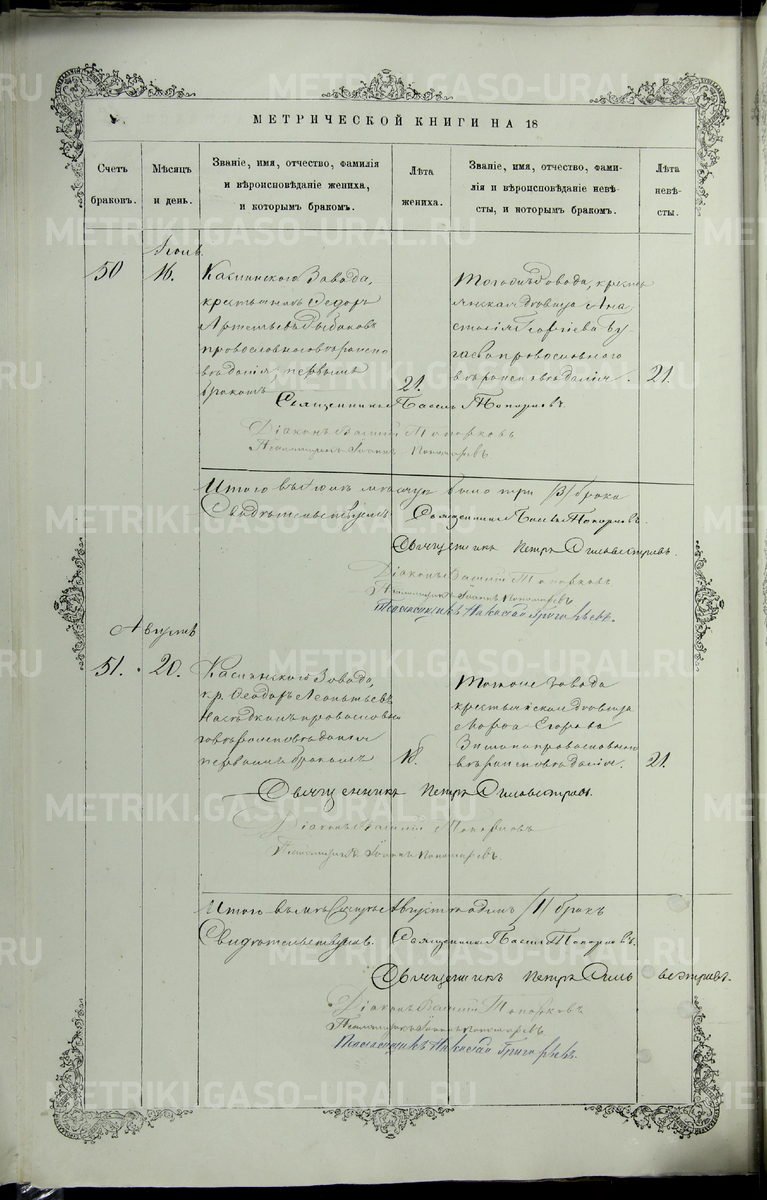 МЕТРИЧЕСКОЙ КНИГИ НА 18
Счетъ браковъ.
Мѣсяцъ и день.
Званіе, имя, отчество, фамилія
и вѣроисповѣданіе жениха,
и которымъ бракомъ.
Лѣта жениха.
Званіе, имя, отчество, фами-
лія и вѣроисповѣданіе невѣ-
сты, и которымъ бракомъ.
Лѣта невѣ-
сты.
Іюль
50
16.
Каслинскаго Завода,
крестьянинъ Ѳедоръ
Артемьевъ Рыбаковъ
православнаго вѣроиспо
вѣданія, первымъ
бракомъ
21.
Того же Завода, кресть
янская дѣвица Ана
стасія Георгіева
православнаго
вѣроисповѣданія.
21.
Священникъ
Діаконъ Василій Топорковъ
Псаломщикъ Іоаннъ Пономаревъ.
Итого въ Іюлѣ мѣсяцѣ было три /3/ брака
Свидѣтельствуемъ Священникъ
Священникъ Петръ Сильвестровъ.
Діаконъ Василій Топорковъ
Псаломщикъ Іоаннъ Пономаревъ
Псаломщикъ Николай Григорьевъ.
Августъ
51.
20.
Каслинскаго Завода,
кр. Ѳеодоръ Леонтьевъ
православна
го вѣроисповѣданія
первымъ бракомъ
18.
Тогоже Завода
крестьянская дѣвица
Марѳа Егорова
Зимина православнаго
вѣроисповѣданія.
21.
Священникъ Петръ Сильвестровъ.
Діаконъ Василій Топорковъ
Псаломщикъ Іоаннъ Пономаревъ.
Итого въ мѣсяцѣ Августѣ одинъ /1/ бракъ
Свидѣтельствуемъ. Священникъ
Священникъ Петръ Сильвестровъ.
Діаконъ Василій Топорковъ
Псаломщикъ Іоаннъ Пономаревъ
Псаломщикъ Николай Григорьевъ.
METRIKI.GASO-URAL.RU